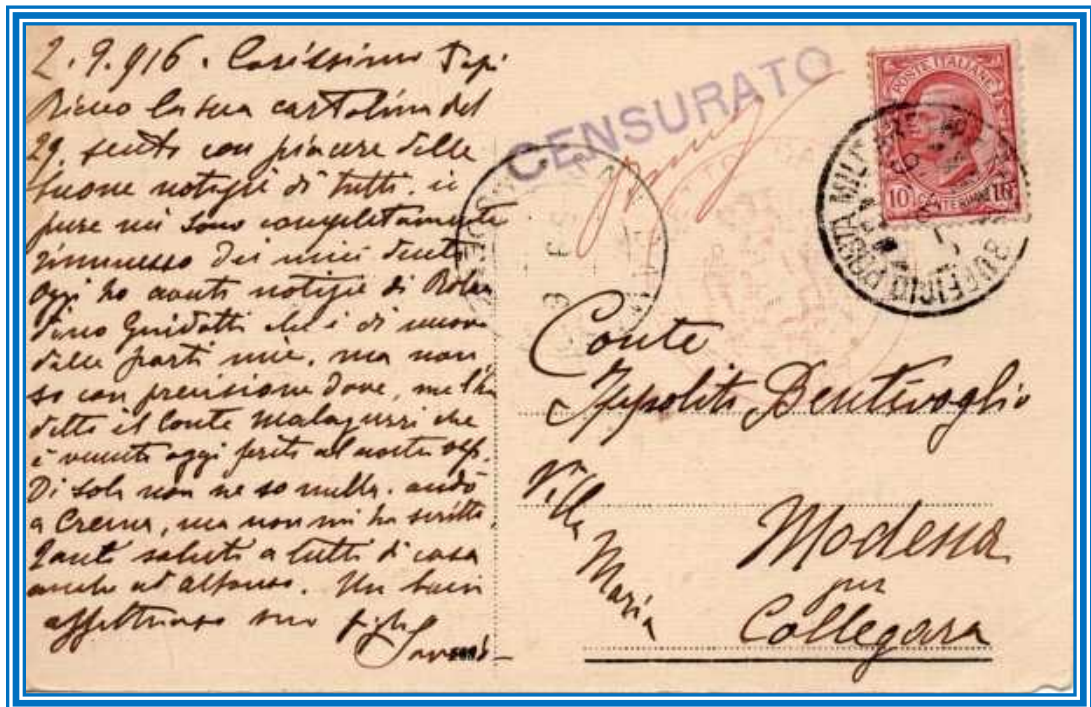 2.9.916. Carissimo Papi
Ricevo la sua cartolina del
29. sento con piacere delle
buone notizie di tutti. io
pure mi sono completamente
rimesso dei miei denti
Oggi ho avuto notizie di Rolan
dino Guidotti che è di nuovo
dalle parti mie, ma non
so con precisione dove, me l'ha
detto il Conte Malaguzzi che
è venuto oggi ferito al nostro osp.
Di Sola non ne so nulla. andò
a Crema, ma non mi ha scritto.
Tanti saluti a tutti di casa
anche ad Alfonso. Un bacio
affettuoso suo figlio
CENSURATO
POSTE ITALIANE
10 CENTESIMI 10
UFFICIO POSTA MILITARE
Conte
Ippolito Bentivoglio
Villa Maria
Modena
per
Collegara